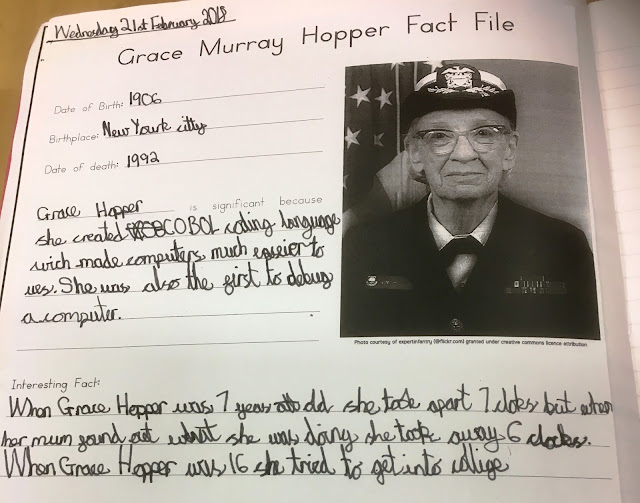 Wednesday 21st February 2018
Grace Murray Hopper Fact File
Date of Birth: 1906
Birthplace: New Yourk citty
Date of death: 1992
Grace Hopper is significant because
she created COBOL coding language
wich made computers much epseier to
ues. She was also the first to debug
a computer.
Photo courtesy of expertinfantry (@flickr.com) granted under creative commons licence attribution
Interesting Fact:
When Grace Hopper was 7 years old she took apart 7 cloks but when
her mum found out what she was doing she took away 6 clocks.
When Grace Hopper was 16 she tried to get into collige